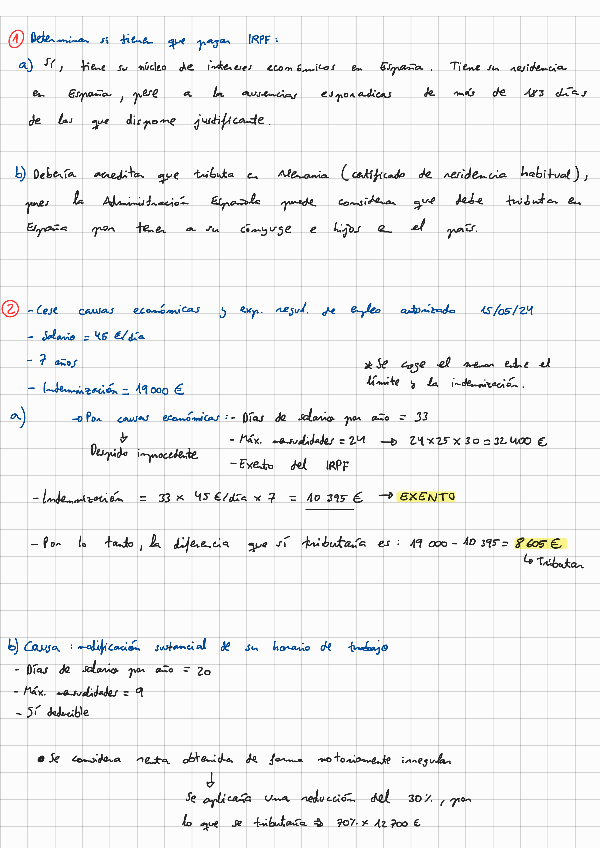 1 Determinar si tienen que pagar IRPF:
a) Sí, tiene su núcleo de intereses económicos en España. Tiene su residencia
en España, pese a la ausencias esporadicas de más de 183 días
de las que dispone justificante.
b) Debería acreditar que tributa en Alemania (certificado de residencia habitual),
pues la Administración Española puede considerar que debe tributar en
España por tener a su cónyuge e hijos en el país.
2 - Cese causas económicas y exp. regul. de empleo autorizado 15/05/24
- Salario = 45 €/día
- 7 años
* Se coge el menor entre el
límite y la indemnización.
- Indemnización = 19 000 €
a) → Por causas económicas: - Días de salario por año = 33
↓ - Máx. mensualidades = 24 → 24 x 25 x 30 = 32 400 €
Despido improcedente
- Exento del IRPF
- Indemnización = 33 x 45 €/día x 7 = 10 395 € → EXENTO
- Por lo tanto, la diferencia que sí tributaría es: 19 000 - 10 395 = 8 605 €
↳ Tributar
b) Causa: modificación sustancial de su horario de trabajo
- Días de salario por año = 20
- Máx. mensualidades = 9
- Sí deducible
• Se considera renta obtenida de forma notoriamente irregular
↓
Se aplicaría una reducción del 30%, por
lo que se tributaría → 70% x 12 700 €